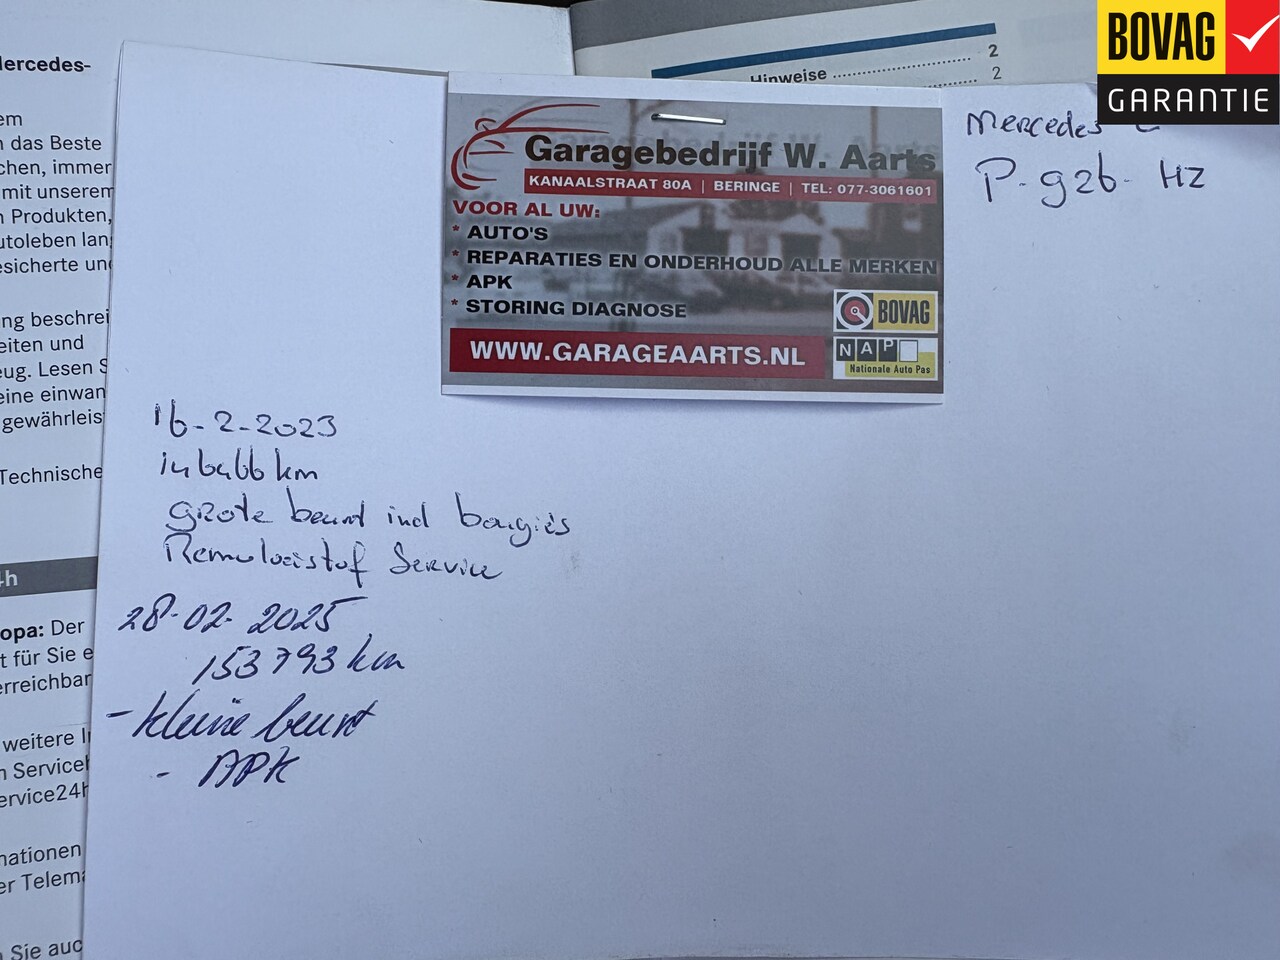 BOVAG
GARANTIE
Hinweise 2
2
Mercedes
P-926-HZ
Garagebedrijf W. Aarts
KANAALSTRAAT 80A | BERINGE | TEL: 077-3061601
VOOR AL UW:
* AUTO'S
* REPARATIES EN ONDERHOUD ALLE MERKEN
* APK
* STORING DIAGNOSE
BOVAG
NAP
Nationale Auto Pas
WWW.GARAGEAARTS.NL
16-2-2023
km
grote beurt incl bougies
Remvloeistof Service
28-02-2025
153793 km
- kleine beurt
- APK
Mercedes-
em
n das Beste
chen, immer
mit unserem
n Produkten,
utoleben lan
esicherte und
ng beschrei
eiten und
eug. Lesen S
eine einwan
gewährleis
Technische
4h
opa: Der
t für Sie e
erreichbar
weitere I
n Service
ervice24h
nationen
er Telema
n Sie auc